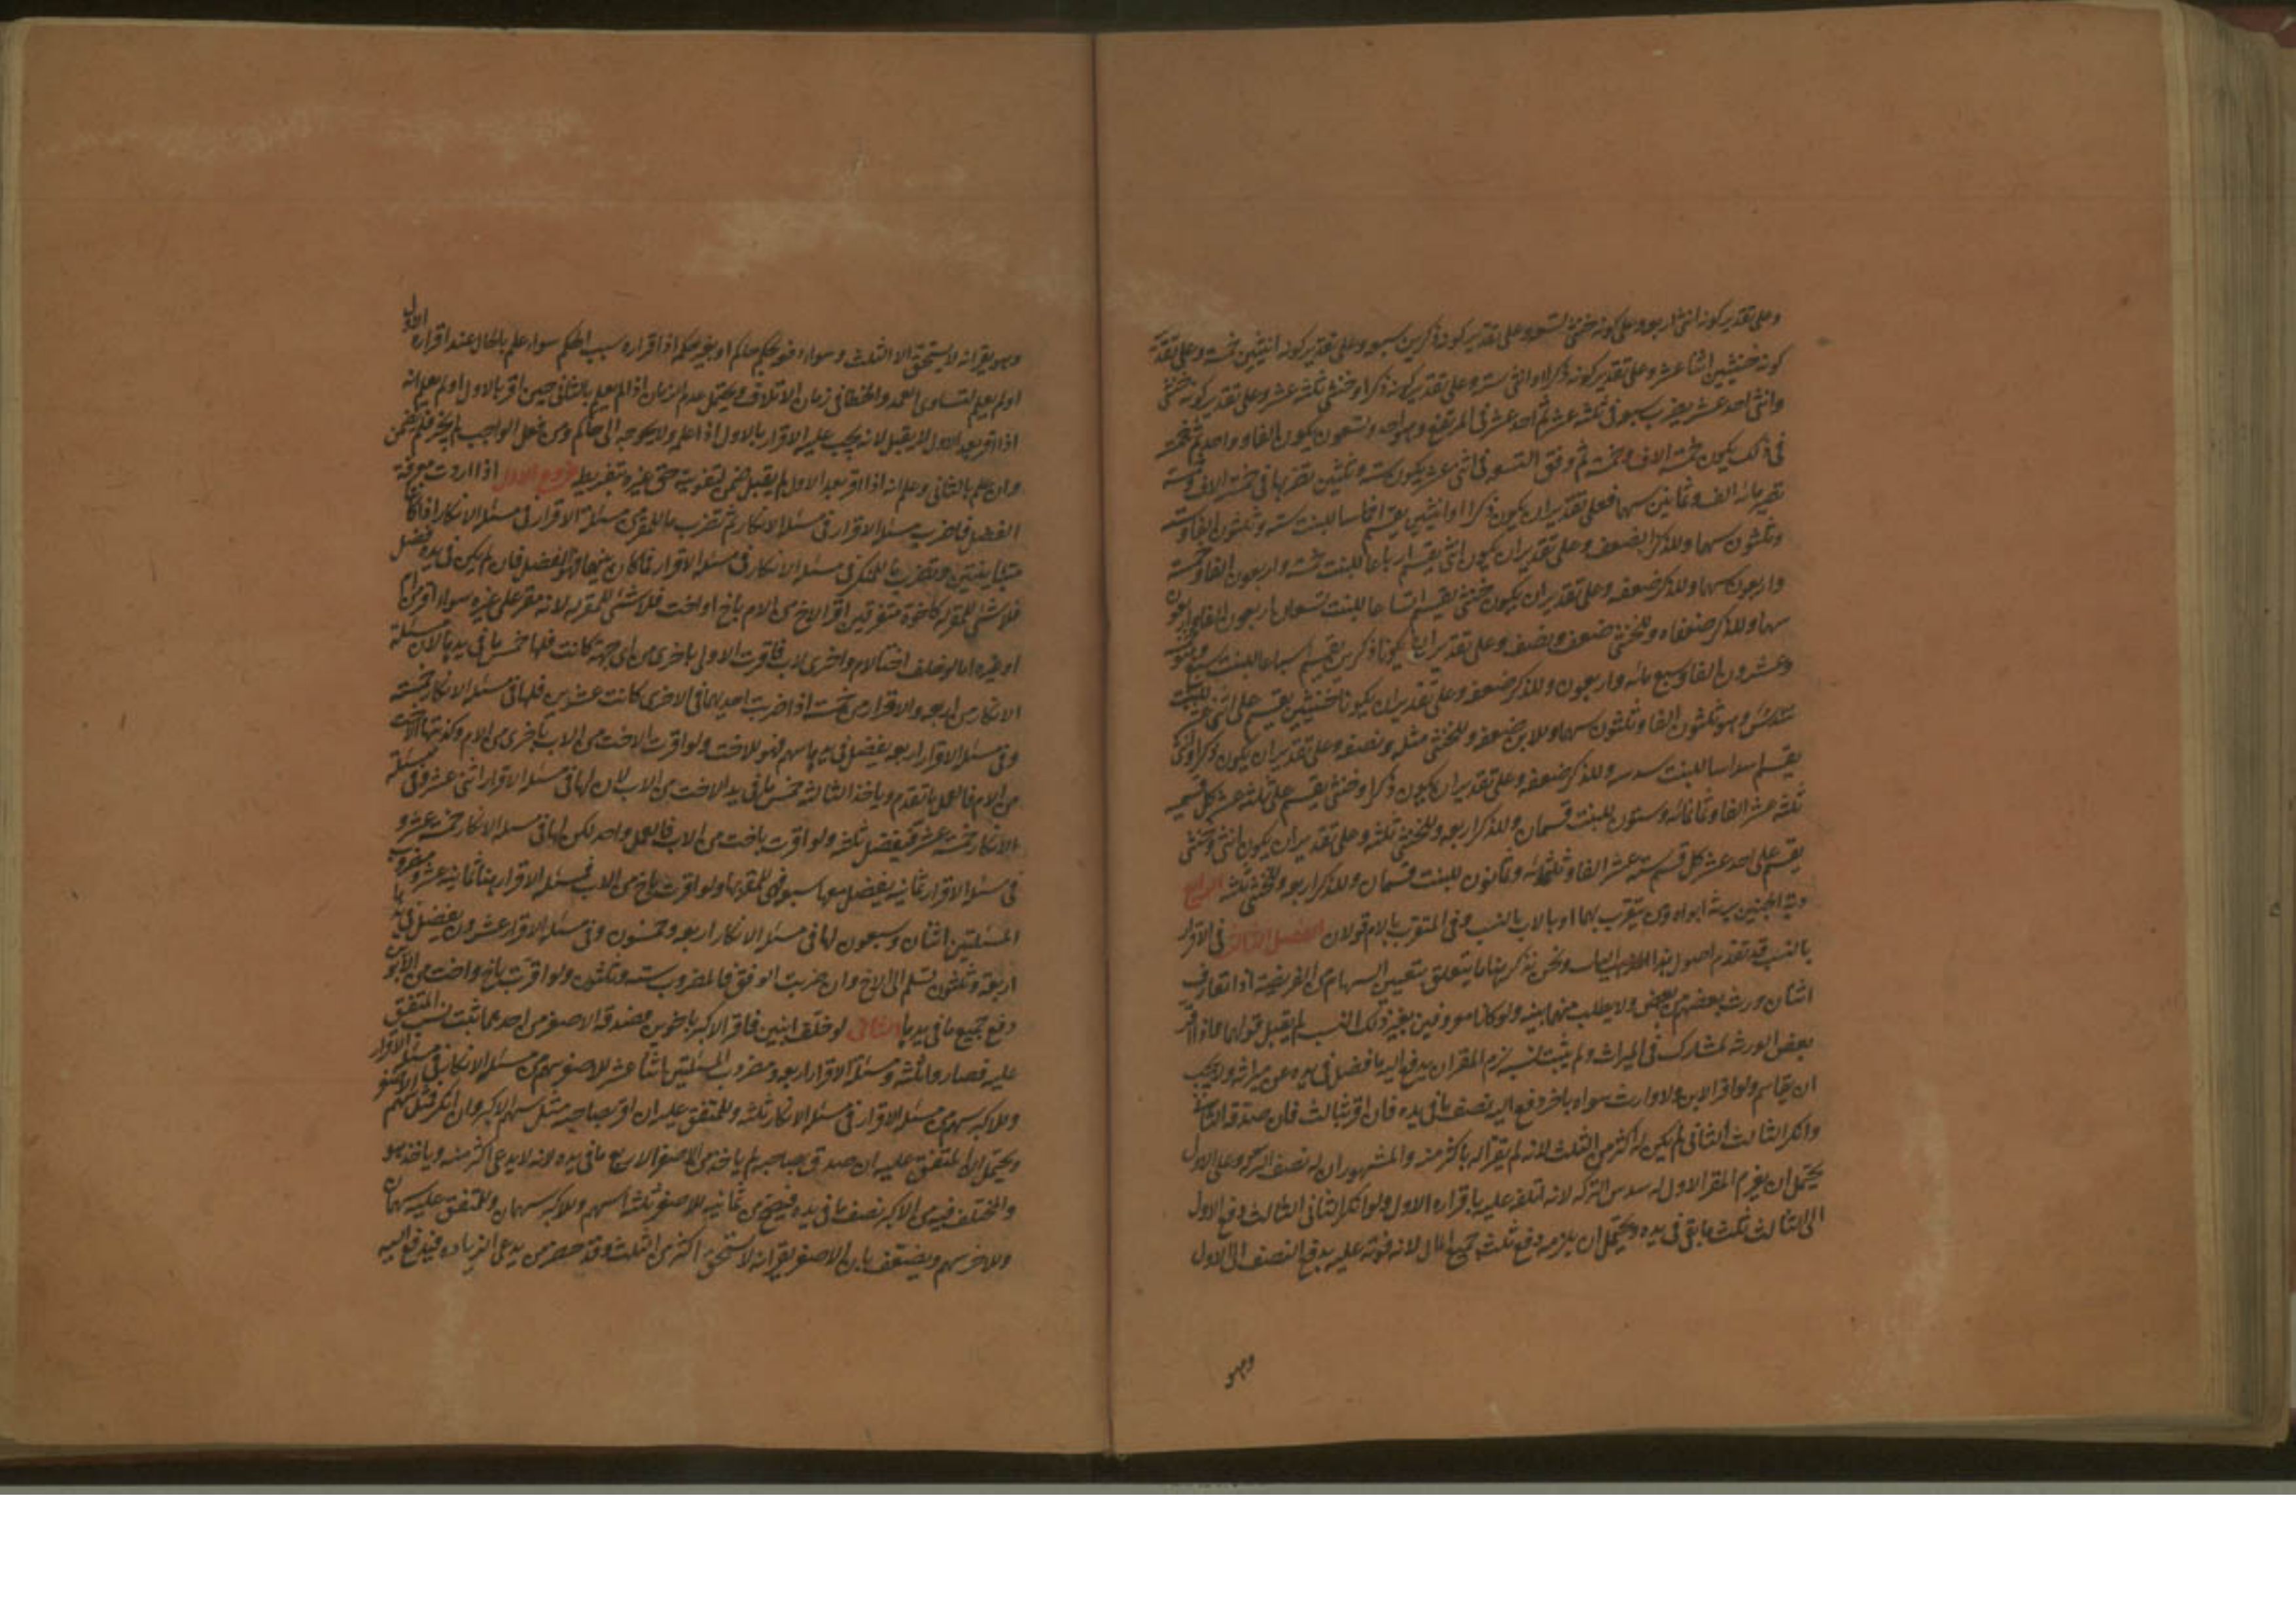 وعلى تقدير كونه انثى اربعة وعلى كونه خنثى تسعة وعلى تقدير كونه ذكرين سبعة وعلى تقدير كونه انثيين خمسة وعلى تقدير
كونه خنثيين اثنا عشر وعلى تقدير كونه ذكرا وانثى ستة وعلى تقدير كونه ذكرا وخنثى ثلثة عشر وعلى تقدير كونه خنثى
وانثى احد عشر يضرب سبعة في ثلثة عشر ثم احد عشر في المرتفع وهو احد وتسعون يكون الفا وواحدا ثم خمسة
في ذلك يكون خمسة الاف وخمسة ثم وفق التسعة في اثنى عشر يكون ستة وثلثين تضربها في خمسة الاف وخمسة
تصير مائة الف وثمانين سهما فعلى تقدير ان يكون ذكرا او انثيين يقسم اخماسا للبنت ستة وثلثون الفا وستة
وثلثون سهما وللذكر الضعف وعلى تقدير ان يكون انثى يقسم ارباعا للبنت خمسة واربعون الفا وخمسة
واربعون سهما وللذكر ضعفه وعلى تقدير ان يكون خنثى يقسم اتساعا للبنت تسعاه اربعون الفا واربعون
سهما وللذكر ضعفاه وللخنثى ضعف ونصف وعلى تقدير ان يكونا ذكرين يقسم اسباعا للبنت سبع وهو خمسة
وعشرون الفا وسبع مائة واربعون وللذكر ضعفه وعلى تقدير ان يكونا خنثيين يقسم على اثنى عشر للبنت
سدس وهو ثلثون الفا وثلثون سهما وللابن ضعفه وللخنثى مثله ونصفه وعلى تقدير ان يكون ذكرا وانثى
يقسم اسداسا للبنت سدسه وللذكر ضعفه وعلى تقدير ان يكون ذكرا وخنثى يقسم على ثلثة عشر كل قسم
ثلثة عشر الفا وثمانمائة وستون للبنت قسمان وللذكر اربعة وللخنثى ثلثة وعلى تقدير ان يكون انثى وخنثى
يقسم على احد عشر كل قسم ستة عشر الفا وثلثمائة وثمانون للبنت قسمان وللذكر اربعة وللخنثى ثلثة الرابع
دية الجنين يرثه ابواه ومن يتقرب بهما او بالاب بالنسب وفي المتقرب بالام قولان الفصل الثالث في الاقرار
بالنسب قد تقدم اصول هذا الباب ونحن نذكر هنا ما يتعلق بتعيين السهام من الفريضة اذا تعارف
اثنان ورث بعضهم من بعض ولا يطلب منهما بينة ولو كانا معروفين بغير ذلك النسب لم يقبل قولهما واذا اقر
بعض الورثة بمشارك في الميراث ولم يثبت نسبه لزم المقر ان يدفع اليه ما فضل في يده عن ميراثه ولا يجب
ان يقاسمه ولو اقر الابن ولا وارث سواه باخر دفع اليه نصف ما في يده فان اقر بثالث فان صدقه الثاني
وانكر الثالث الثاني لم يكن له اكثر من الثلث لانه لم يقر له باكثر منه والمشهور ان له نصف التركة وعلى الاول
يحتمل ان يغرم المقر الاول له سدس التركة لانه اتلفه عليه باقراره الاول ولو انكر الثاني الثالث دفع الاول
الى الثالث ثلث ما بقي في يده ويحتمل ان يلزمه دفع ثلث جميع المال لانه فوته عليه بدفع النصف الى الاول
وهو
وهو يقر انه لا يستحق الا الثلث وسواء دفعه بحكم حاكم او بغير حكمه اذ اقراره سبب الحكم سواء علم بالحال عند اقراره الاول
او لم يعلم لتساوي العمد والخطأ في زمان الاتلاف ويحتمل عدم الضمان اذا لم يعلم بالثاني حين اقر بالاول او لم يعلم انه
اذا اقر بعد الاول لا يقبل لانه يجب عليه الاقرار بالاول اذا علمه ولا يحوجه الى حاكم ومن فعل الواجب لم يخن فلم يضمن
وان علم بالثاني وعلم انه اذا اقر بعد الاول لم يقبل ضمن لتفويته حق غيره بتفريطه فروع الاول اذا اردت معرفة
الفضل فاضرب مسئلة الاقرار في مسئلة الانكار ثم تضرب ما للمقر من مسئلة الاقرار في مسئلة الانكار اذا كانتا
متباينتين وتضرب ما للمنكر في مسئلة الانكار في مسئلة الاقرار فما كان بينهما فهو الفضل فان لم يكن في يده فضل
فلا شئ للمقر له كاخوة متفرقين اقر الاخ من الام باخ او اخت فلا شئ للمقر له لانه مقر على غيره سواء اقر من ام
او غيره اما لو خلف اختا لام واخرى لاب فاقرت الاولى باخرى من اي جهة كانت فلها خمس ما في يدها لان مسئلة
الانكار من اربعة والاقرار من خمسة اذا ضربت احديهما في الاخرى كانت عشرين فلها في مسئلة الانكار خمسة
وفي مسئلة الاقرار اربعة يفضل في يدها سهم فهو للاخت ولو اقرت الاخت من الاب باخرى من الام وكذبتها الاخت
من الام فالعمل ما تقدم وياخذ الثالثة خمس ما في يد الاخت من الاب لان لها في مسئلة الاقرار اثنى عشر وفي مسئلة
الانكار خمسة عشر فيفضل ثلثة ولو اقرت باخت من الاب فالعمل واحد لكن لها في مسئلة الانكار خمسة عشر و
في مسئلة الاقرار ثمانية يفضل معها سبعة فهي للمقر بها ولو اقرت باخ من الاب فمسئلة الاقرار هنا ثمانية عشر ومضروب
المسئلتين اثنان وسبعون لها في مسئلة الانكار اربعة وخمسون وفي مسئلة الاقرار عشرون يفضل في يدها
اربعة وثلثون تسلم الى الاخ وان ضربت الوفق فالمضروب ستة وثلثون ولو اقرت باخ واخت من الابوين
دفع جميع ما في يدها الثاني لو خلف ابنين فاقر الاكبر باخوين وصدقه الاصغر من احدهما ثبت نسب المتفق
عليه فصاروا ثلثة ومسئلة الاقرار اربعة ومضروب المسئلتين اثنا عشر للاصغر سهم من مسئلة الانكار في مسئلة الاقرار
وللاكبر سهم من مسئلة الاقرار في مسئلة الانكار ثلثة وللمتفق عليه ان اقر بصاحبه مثل سهم الاكبر وان انكر فمثل سهم الاصغر
ويحتمل ان المتفق عليه ان صدق بصاحبه لم ياخذ من الاصغر الا ربع ما في يده لانه لا يدعي اكثر منه وياخذ هو
والمختلف فيه من الاكبر نصف ما في يده فيصح من ثمانية للاصغر ثلثة اسهم وللاكبر سهمان وللمتفق عليه سهمان
وللاخر سهم ويضعف بان الاصغر يقر انه لا يستحق اكثر من الثلث وقد حضر من يدعي الزيادة فيدفع اليه